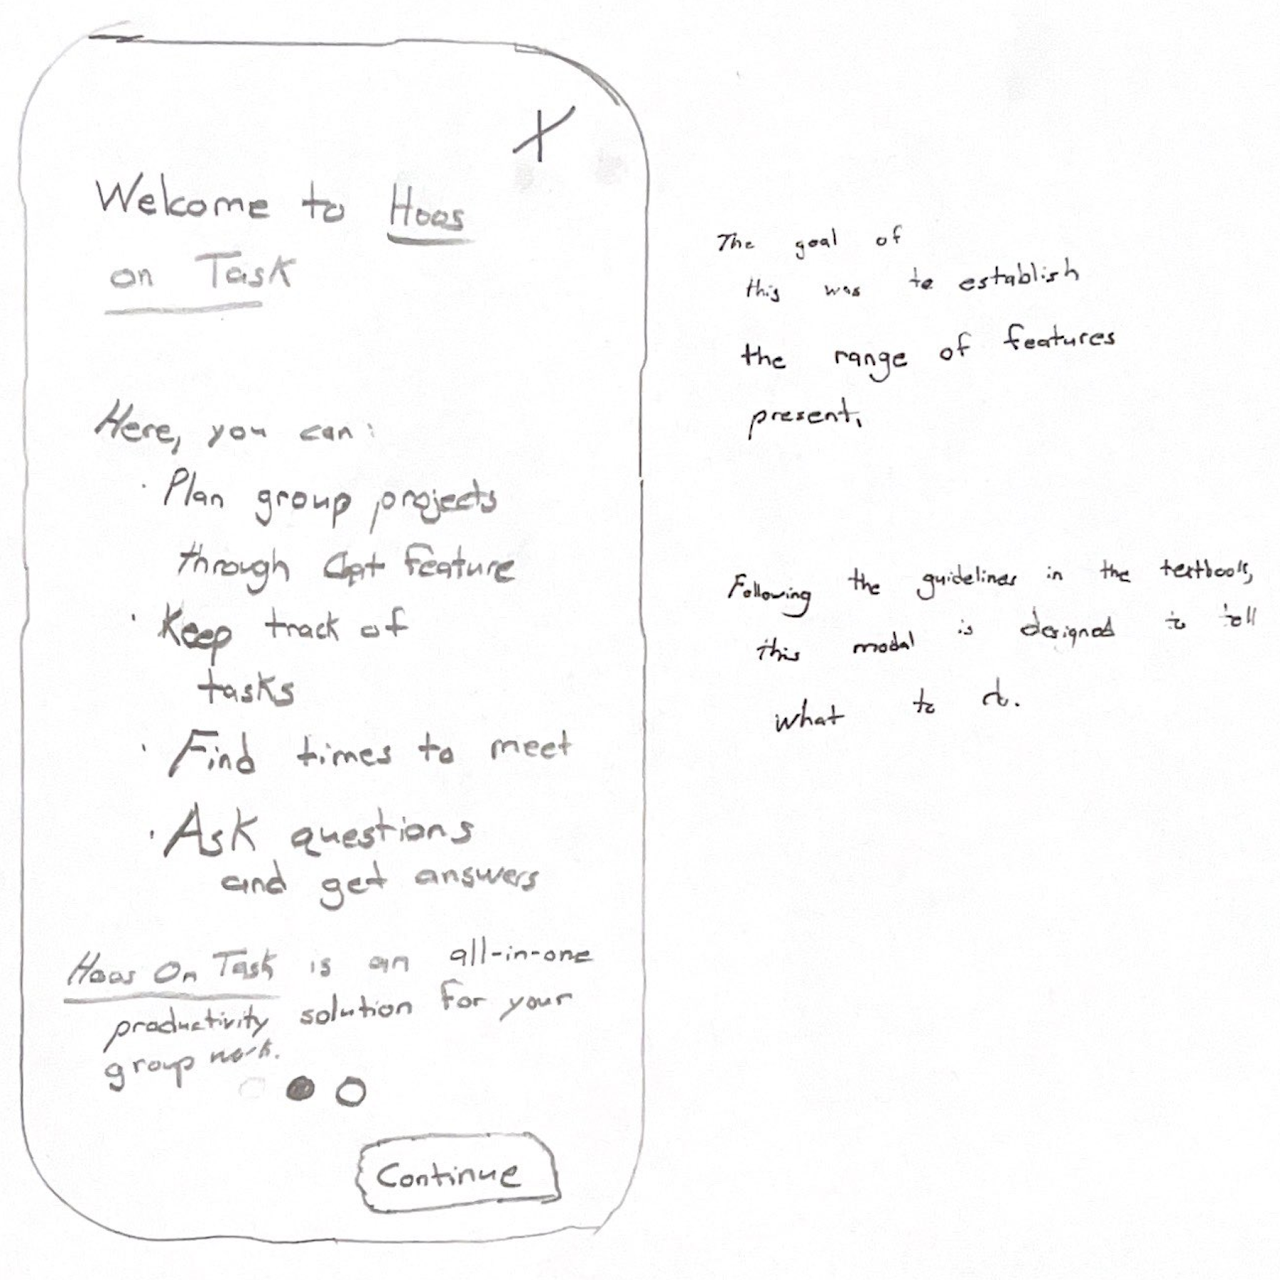 X
Welcome to Hoos
on Task
Here, you can:
· Plan group projects
through feature
· Keep track of
tasks
· Find times to meet
· Ask questions
and get answers
Hoos On Task is an all-in-one
productivity solution for your
group work.
Continue
The goal of
this was to establish
the range of features
present.
Following the guidelines in the textbook,
this modal is designed to tell
what to do.